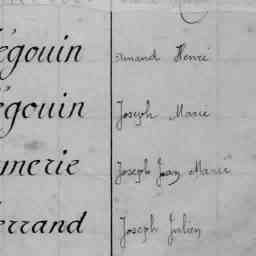 égouin Armand Henri
égouin Joseph Marie
merie Joseph Jean Marie
errand Joseph Julien